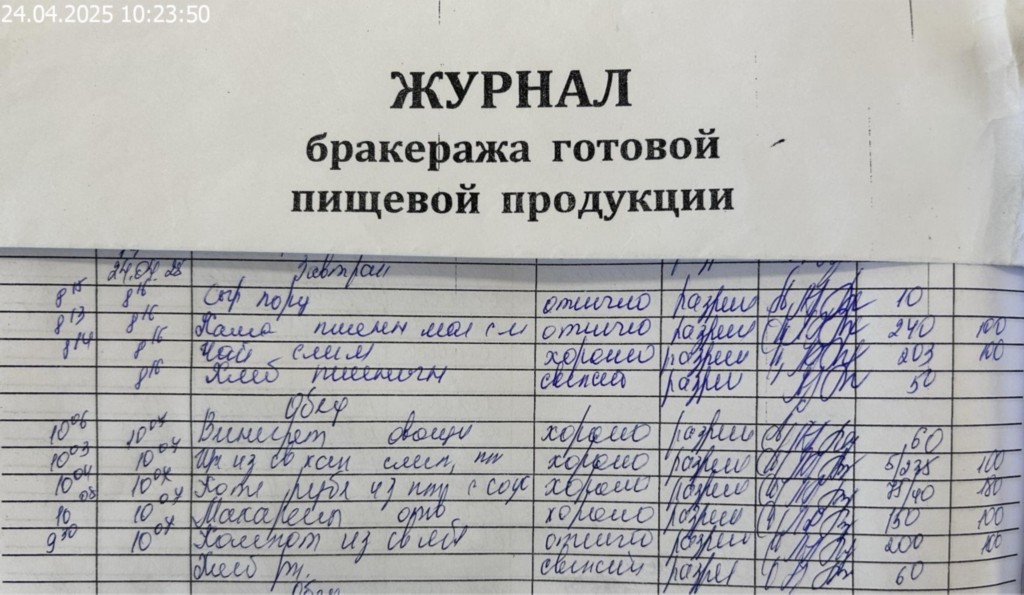 24.04.2025 10:23:50
ЖУРНАЛ
бракеража готовой
пищевой продукции
24.04.25 Завтрак
8 15 8 16 Сыр порц отлично разреш 10
8 13 8 16 Каша пшенн мол сл отлично разреш 240 100
8 14 8 16 Чай слим хорошо разреш 203 100
8 16 Хлеб пшеничн свежий разреш 50
Обед
10 06 10 07 Винегрет овощн хорошо разреш 60
10 03 10 07 из св кап смет, хорошо разреш 5/235 100
10 04 10 07 Котл рубл из птц с соус хорошо разреш 75/40 180
10 05 10 07 Макароны отв хорошо разреш 150 100
9 50 10 07 Компот из св ябл отлично разреш 200 100
Хлеб рж. свежий разреш 60